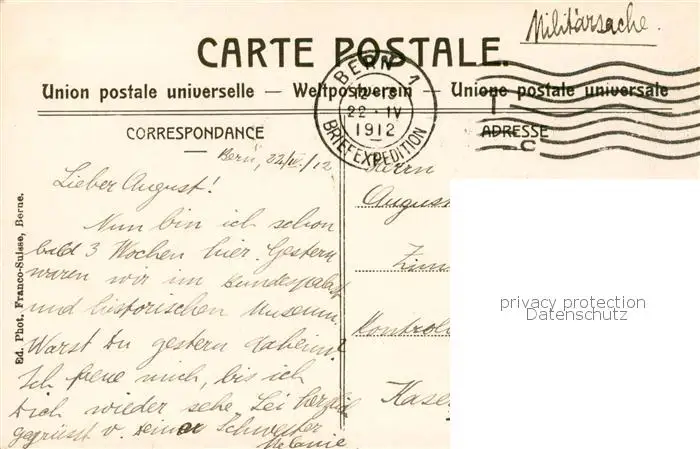 Militärsache.
CARTE POSTALE.
Union postale universelle — Weltpostverein — Unione postale universale
BERN 1
22·IV
1912
BRIEFEXPEDITION
CORRESPONDANCE
ADRESSE
Bern, 22/IV./12
Lieber August!
Nun bin ich schon
bald 3 Wochen hier. Gestern
waren wir im Bundespalast
und historischen Museum.
Warst Du gestern daheim?
Ich freue mich, bis ich
Dich wieder sehe. Sei herzlich
gegrüsst v. Deiner Schwester
Melanie
Herrn
August
Zim
Kontrol
Kase
Ed. Phot. Franco-Suisse, Berne.
privacy protection
Datenschutz